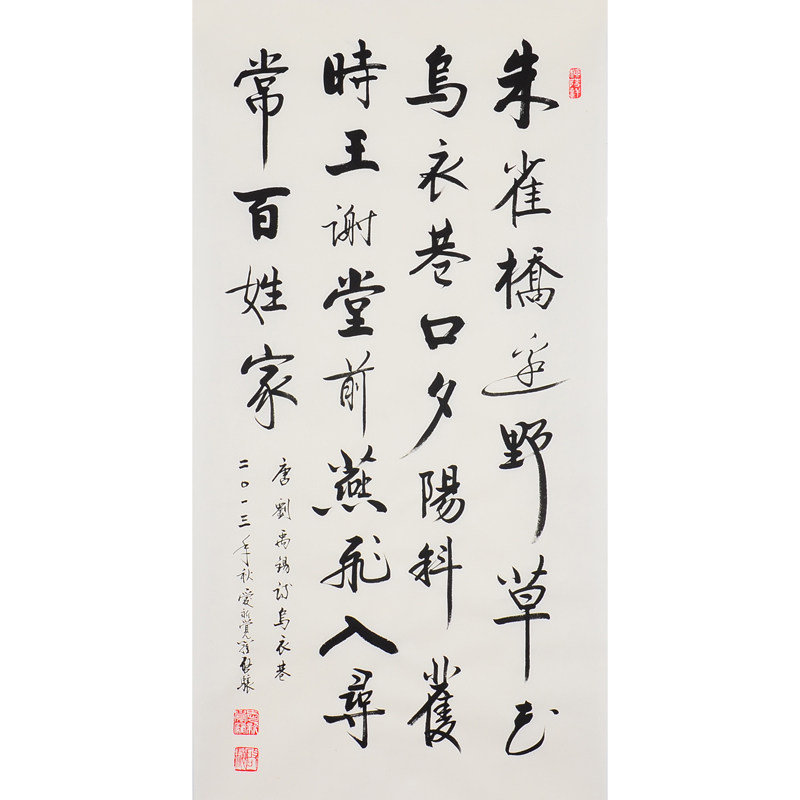 朱雀橋邊野草花
烏衣巷口夕陽斜舊
時王謝堂前燕飛入尋
常百姓家
唐劉禹錫詩烏衣巷
二〇一三年秋愛新覺羅啟驤